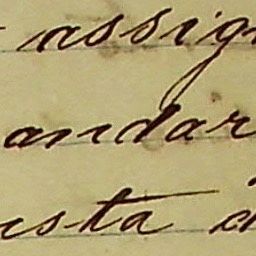 assig
andar
usta d